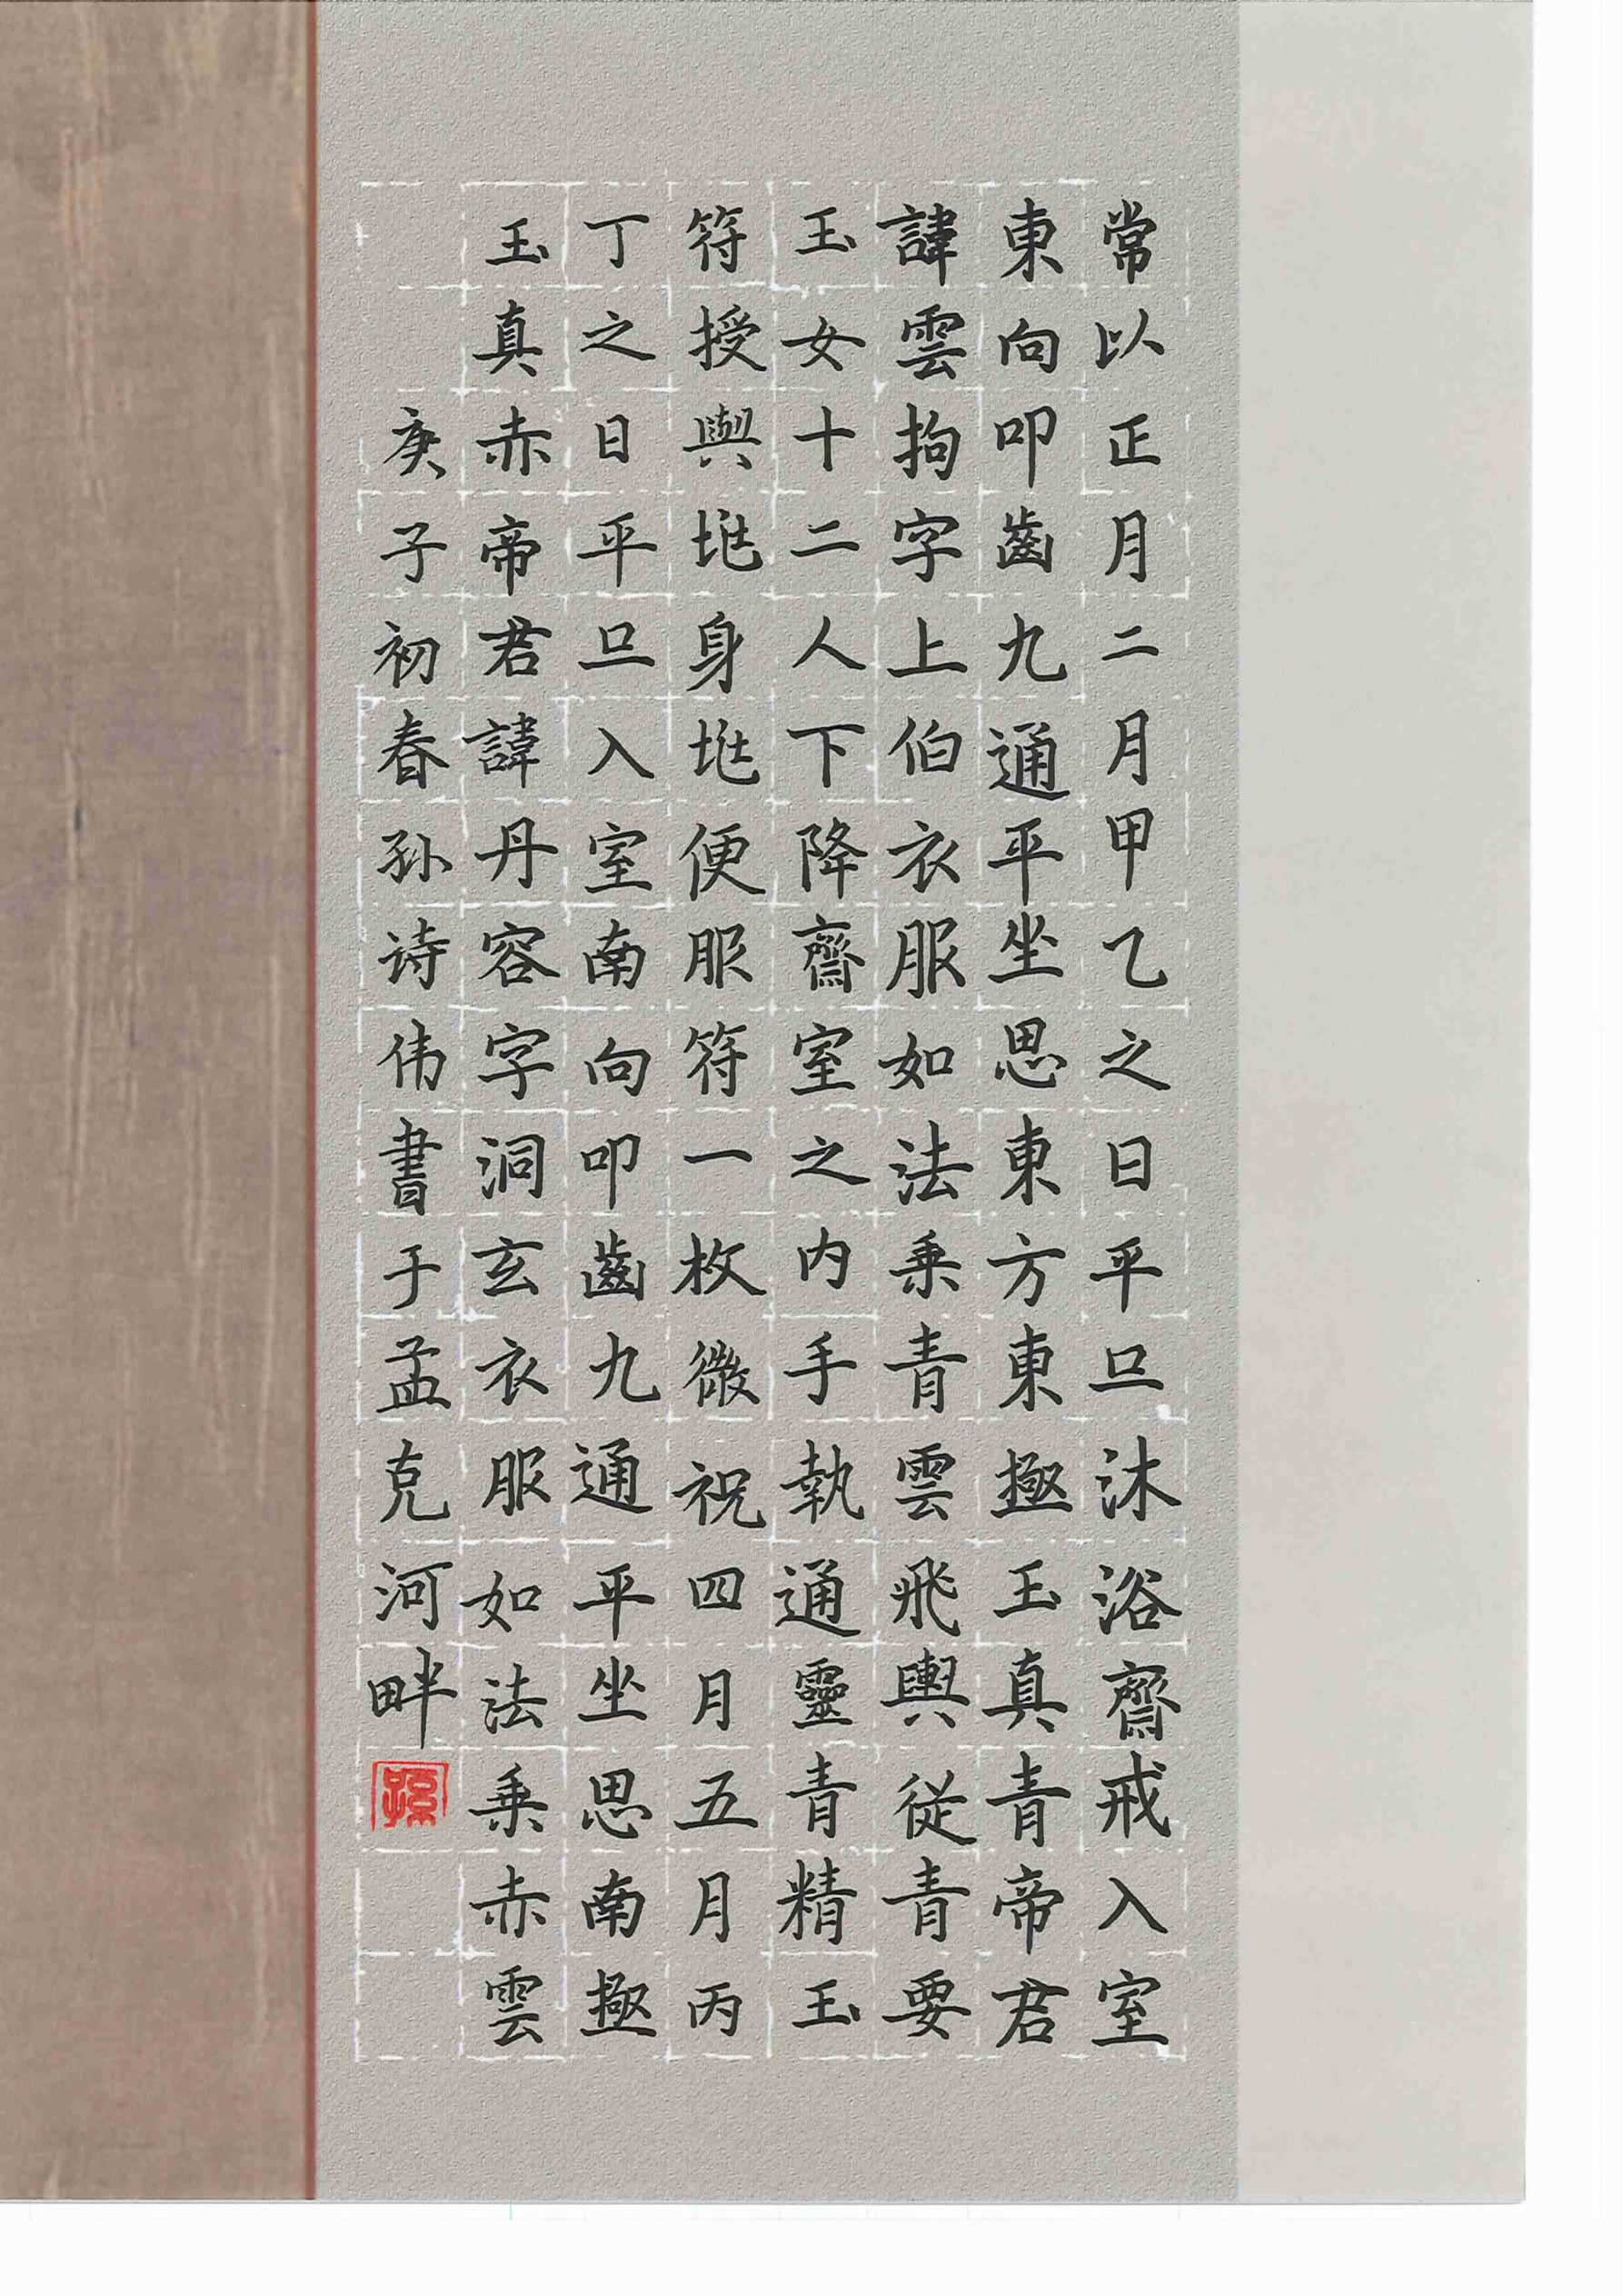 常以正月二月甲乙之日平旦沐浴齋戒入室
東向叩齒九通平坐思東方東極玉真青帝君
諱雲拘字上伯衣服如法乗青雲飛輿從青要
玉女十二人下降齋室之内手執通靈青精玉
符授與兆身兆便服符一枚微祝四月五月丙
丁之日平旦入室南向叩齒九通平坐思南極
玉真赤帝君諱丹容字洞玄衣服如法乗赤雲
庚子初春孙诗伟書于孟克河畔
孫